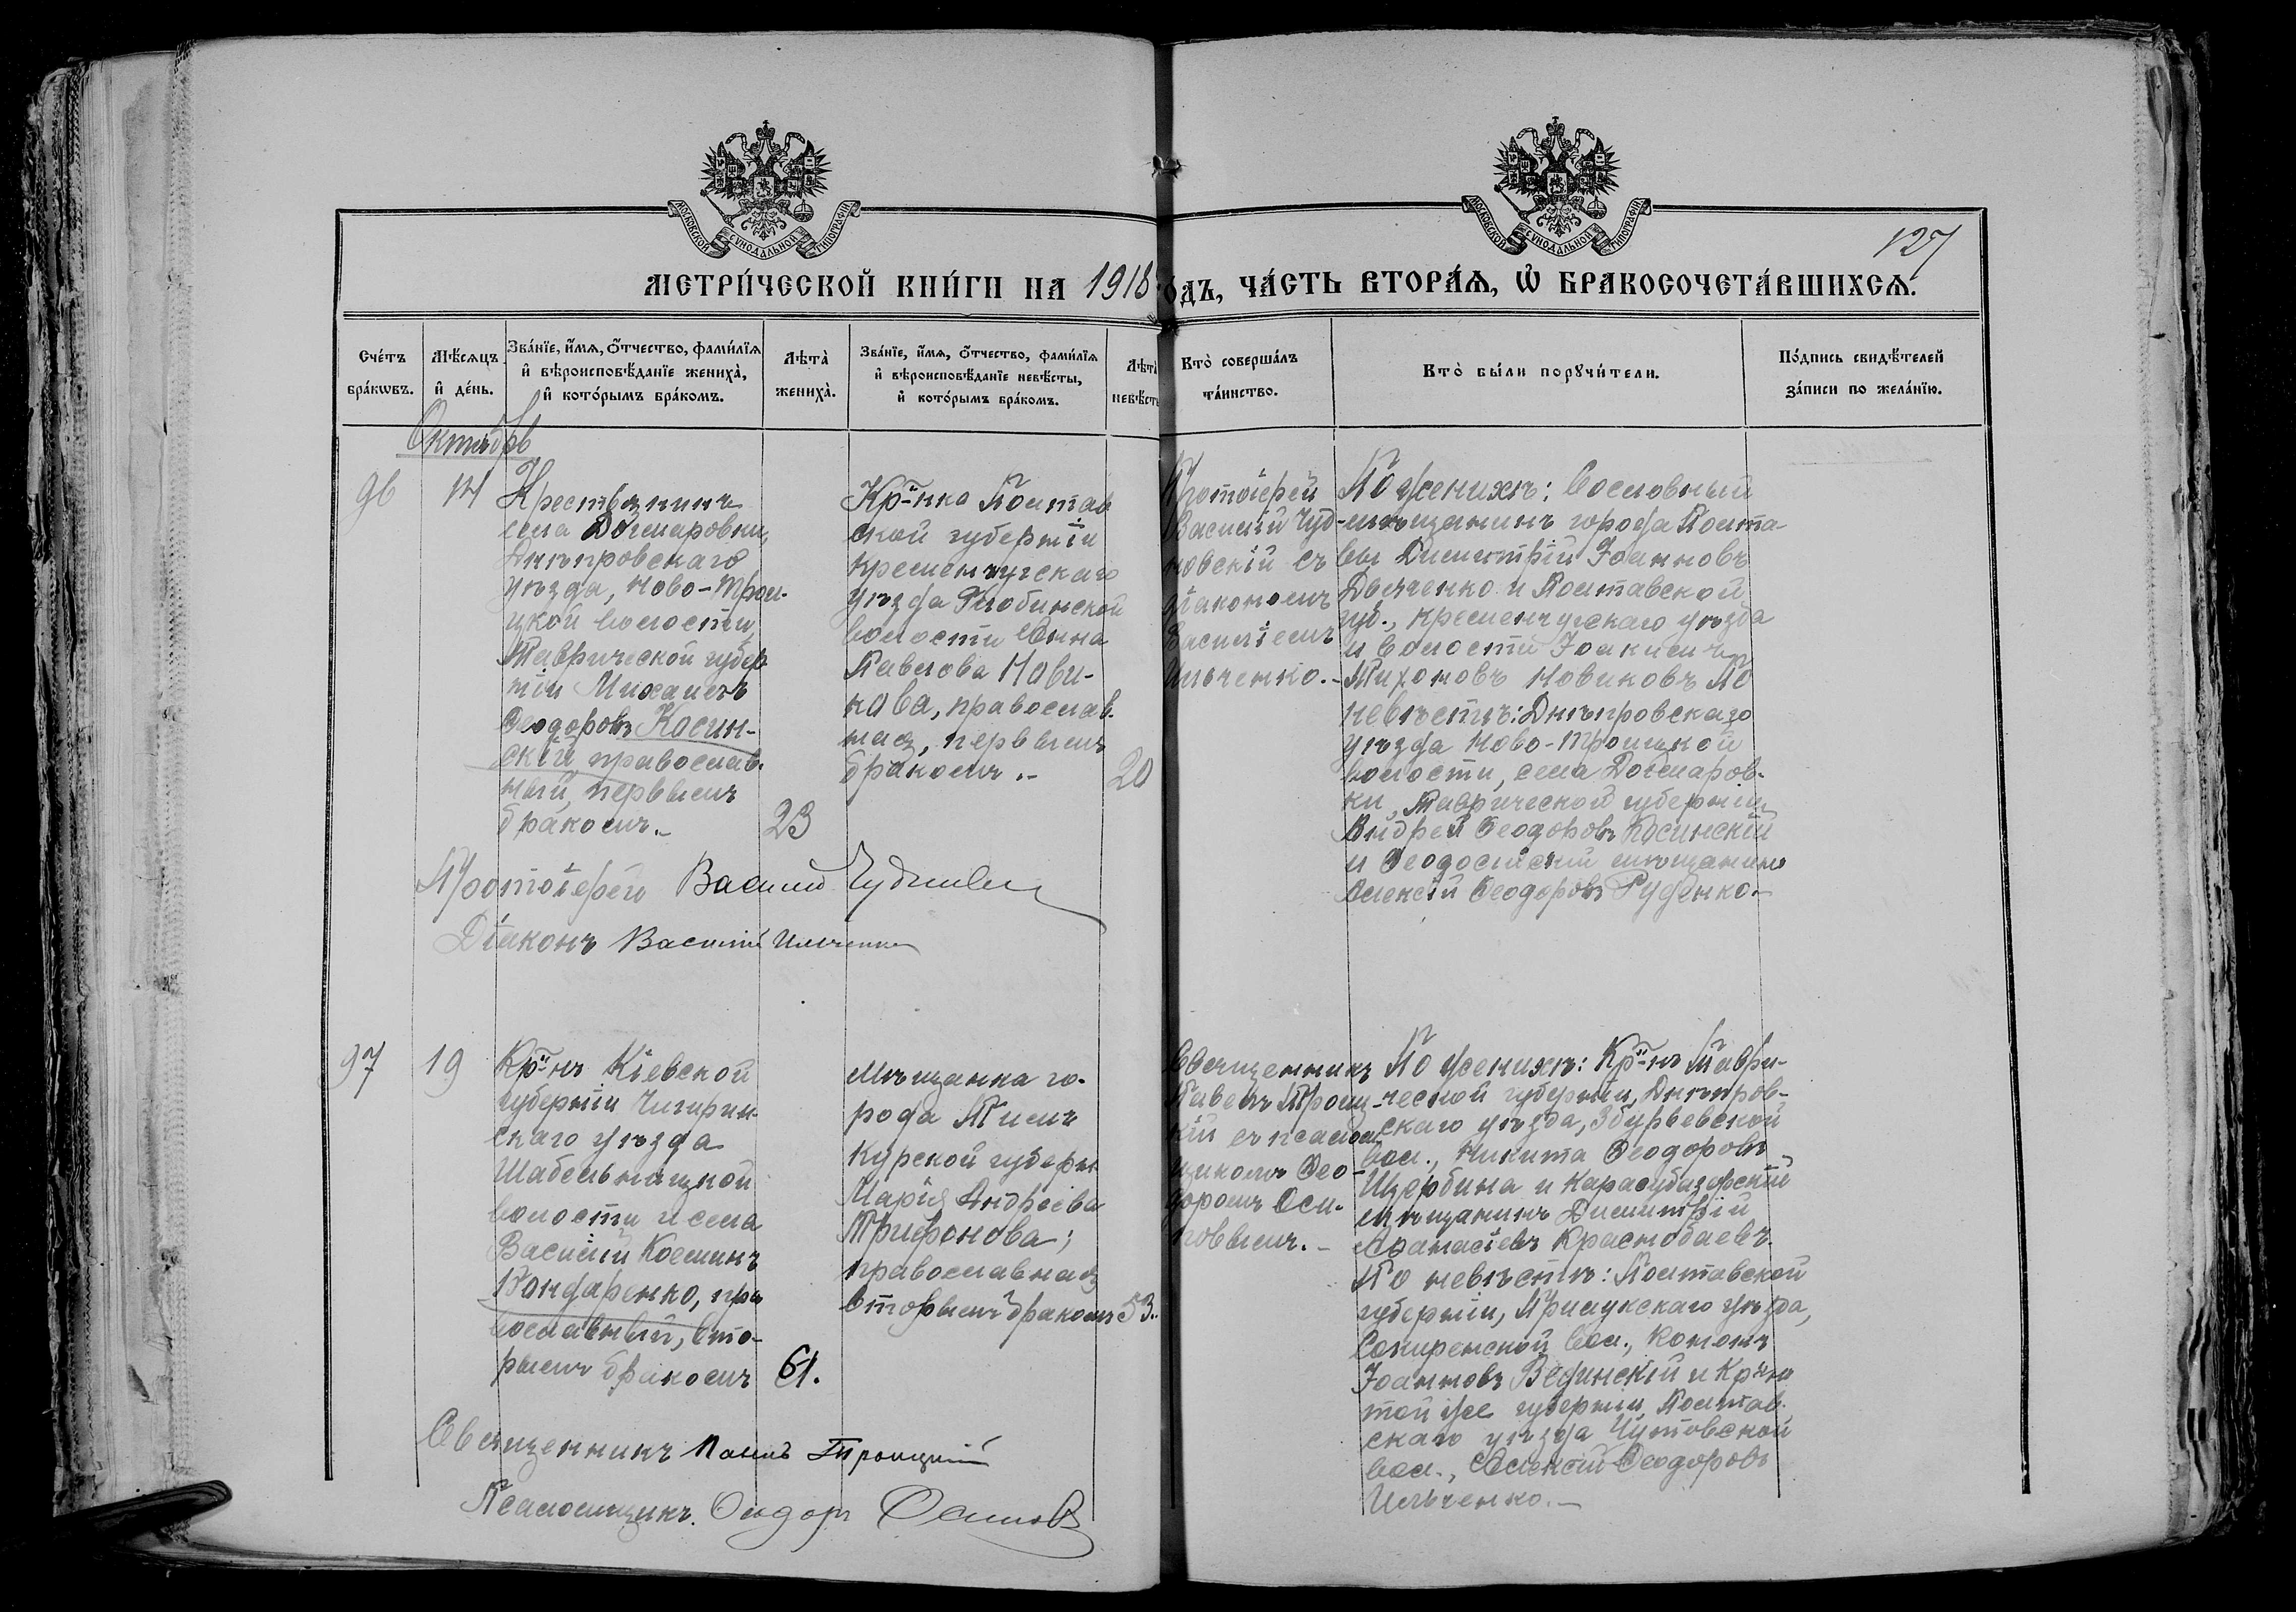 МОСКОВСКОЙ СѴНОДАЛЬНОЙ ТИПОГРАФІИ
МОСКОВСКОЙ СѴНОДАЛЬНОЙ ТИПОГРАФІИ
127
МЕТРИ́ЧЕСКОЙ КНИ́ГИ НА 1918 ГОДЪ, ЧА́СТЬ ВТОРА́Ѧ, Ѽ БРАКОСОЧЕТА́ВШИХСѦ.
Сче́тъ бра́кωвъ.
Мѣ́сѧцъ и҆ де́нь.
Зва́нїе, и҆́мѧ, ѻ҆́тчество, фами́лїѧ и҆ вѣроисповѣ́данїе женихà, и҆ кото́рымъ бра́комъ.
Лѣтà женихà.
Зва́нїе, и҆́мѧ, ѻ҆́тчество, фами́лїѧ и҆ вѣроисповѣ́данїе невѣ́сты, и҆ кото́рымъ бра́комъ.
Лѣтà невѣ́сты
Кто̀ соверша́лъ та́инство.
Кто̀ бы́ли порꙋчи́тели.
По́дпись свидѣ́телей за́писи по жела́нїю.
Октябрь
96
14
Крестьянинъ
села Догмаровки,
Днѣпровскаго
уѣзда, Ново-Трои-
цкой волости,
Таврической губер
ніи Михаилъ
Ѳеодоровъ Косин-
скій, православ-
ный, первымъ
бракомъ.-
23
Кр-нка Полтав
ской губерніи
Кременчугскаго
уѣзда Глобинской
волости Анна
Павлова Нови-
кова, православ-
ная, первымъ
бракомъ.-
20
Протоіерей
Василій Чуд-
новскій съ
діакономъ
Василіемъ
Ильченко.-
По женихѣ: Сословный
мѣщанинъ города Полта-
вы Димитрій Іоанновъ
Дьяченко и Полтавской
губ., Кременчугскаго уѣзда
и волости Іоакимъ
Тихоновъ Новиковъ По
невѣстѣ: Днѣпровскаго
уѣзда Ново-Троицкой
волости, села Догмаров-
ки, Таврической губерніи
Андрей Ѳеодоровъ Косинскій
и Ѳеодосійскій мѣщанинъ
Алексій Ѳеодоровъ Руденко.-
Протоіерей Василий Чудновск
Діаконъ Василій Ильченко
97
19
Кр-нъ Кіевской
губерніи Чигирин-
скаго уѣзда
Шабельницкой
волости и села
Василій Косминъ
Бондаренко, пра
вославный, вто-
рымъ бракомъ
61.
Мѣщанка го-
рода Тимъ
Курской губерн.
Марія Андреева
Трифонова;
православная
вторымъ бракомъ
53..
Священникъ
Павелъ Троиц-
кій съ псалом
щикомъ Ѳео-
доромъ Оси-
повымъ.-
По женихѣ: Кр-нъ Таври-
ческой губерніи, Днѣпров-
скаго уѣзда, Збурьевской
вол., Никита Ѳеодоровъ
Щербина и Карасубазарскій
мѣщанинъ Димитрій
Аѳанасіевъ Краснобаевъ.
По невѣстѣ: Полтавской
губерніи, Прилукскаго уѣзда,
вол., Кононъ
Іоанновъ Вединскій и Кр-нъ
той же губерніи Полтав-
скаго уѣзда Чутовской
вол., Алексій Ѳеодоровъ
Ильченко.-
Священникъ Павелъ Троицкій
Псаломщикъ Ѳеодоръ Осиповъ